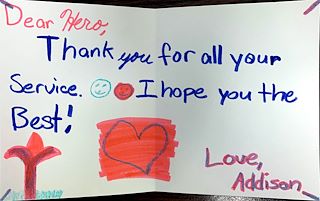 Dear Hero,
Thank you for all your
Service. I hope you the
Best!
Love,
Addison